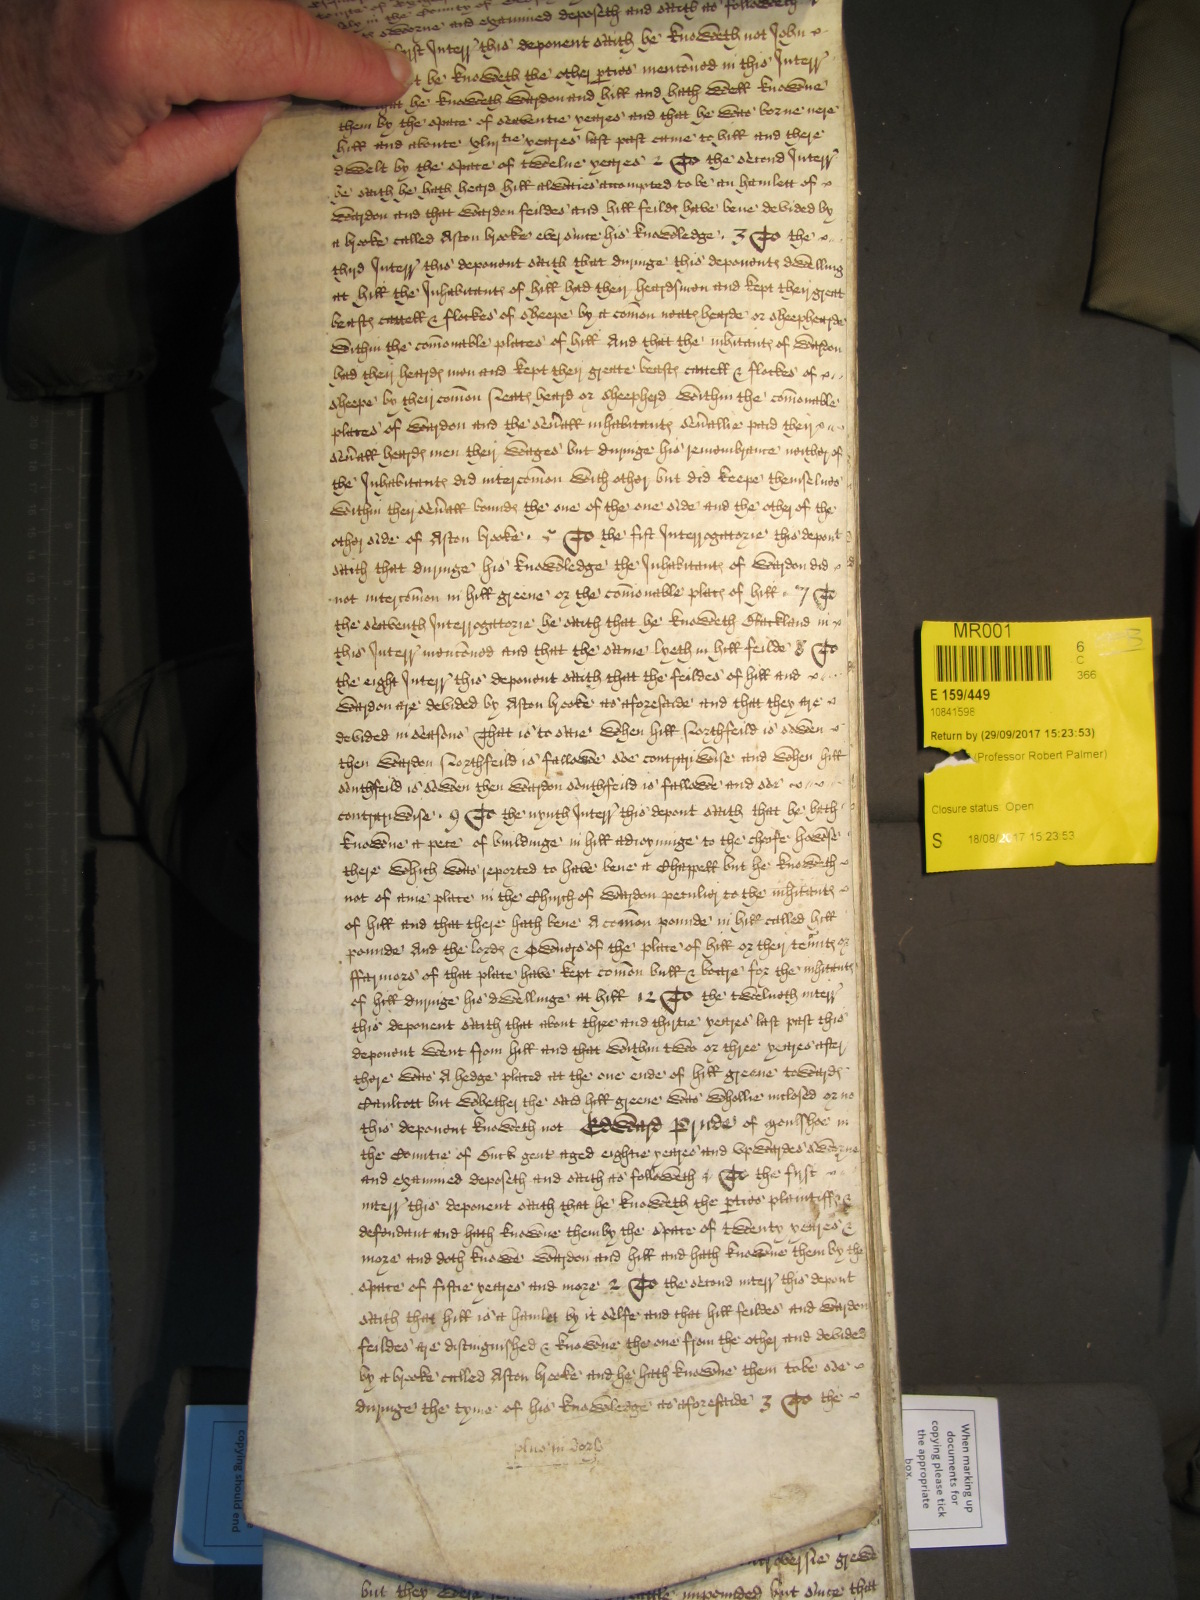 sworne and examined deposeth and saith as followeth
first Interr this deponent saith he knoweth not John
he knoweth the other pties mentioned in this Interr
that he knoweth Wardon and hill and hath well knowne
them by the space of seaventie yeares and that he was borne nere
hill and aboute yeares last past came to hill and there
dwelt by the space of twelue yeares 2 To the second Interr
he saith he hath heard hill alwaies accompted to be an hamlett of
Wardon and that Wardon feildes and hill feilds have bene devided by
a brooke called Aston brooke ever since his knowledge . 3 To the
third Interr this deponent saith that duringe this deponents dwelling
at hill the Inhabitants of hill had their heardsman and kept their great
beasts cattell & flockes of sheepe by a comon neatehearde or sheephearde
within the comonable places of hill And that the inhitants of Wardon
had their heards man and kept their greate beasts cattell & flockes of
sheepe by their comon Neateheard or sheepherd within the comonable
places of Wardon and the seuall inhabitants seuallie paid their
seuall heards men their wages but duringe his remembrance neither of
the Inhabitants did intercomon with other but did keepe themselues
within their seuall bounds the one of the one side and the other of the
other side of Aston brooke . 5 To the fift Interrogatorie this depont
saith that duringe his knowledge the Inhabitants of Wardon did
not intercomon in hill greene or the comonable places of hill . 7 To
the seaventh Interrogatorie he saith that he knoweth in
this Interr mentioned and that the same lyeth in hill feilde 8 To
the eight Interr this deponent saith that the feildes of hill and
Wardon are devided by Aston brooke as aforesaide and that they are
devided in seasons That is to saie When hill Northfeild is sowen
then Wardon Northfeild is fallowe soe contrariwise and when hill
southfeild is sowen then Wardon southfeild is fallowe and soe
contrariwise . 9 To the nynth Interr this depont saith that he hath
knowne a pece of buildinge in hill adioyninge to the cheife howse
there which was reported to have bene a Chappell but he knoweth
not of anie place in the Church of Wardon peculier to the inhitants
of hill and that there hath bene A comon pounde in hill called hill
pounde And the lords & Owners of the place of hill or their tennts or
ffarmors of that place have kept comon bull & boare for the inhitants
of hill duringe his dwellinge at hill 12 To the twelueth interr
this deponent saith that about three and thirtie yeares last past this
deponent went from hill and that within two or three yeares after
there was A hedge placed at the one ende of hill greene towards
Caulcott but whether the said hill greene was whollie inclosed or no
this deponent knoweth not Edward Prude of in
the Countie of Buck gent aged eightie yeares and upwardes sworne
and examined deposeth and saith as followeth 1 To the first
interr this deponent saith that he knoweth the pties plaintiffs &
defendant and hath knowne them by the space of twenty yeares &
more and doth knowe Wardon and hill and hath knowne them by the
space of fiftie yeares and more 2 To the second interr this depont
saith that hill is a hamlet by it selfe and that hill feildes and Wardon
feildes are distinguished & knowne the one from the other and devided
by a brooke called Aston brooke and he hath knowne them to be soe
duringe the tyme of his knowledge as aforesaide 3 To the
plus in dorso
controversie grewe
but they were impounded but since that
MR001
6
C
366
E 159/449
10841598
Return by (29/09/2017 15:23:53)
(Professor Robert Palmer)
Closure status: Open
S 18/08/2017 15:23:53
When marking up
documents for
copying please tick
the appropriate
box.
copying should end